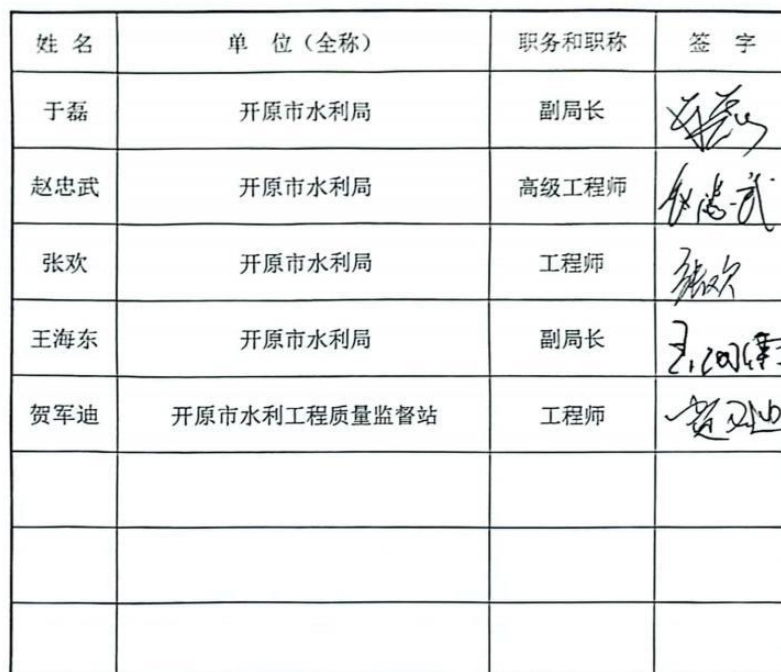 姓 名 单 位（全称） 职务和职称 签 字
于磊 开原市水利局 副局长
赵忠武 开原市水利局 高级工程师 赵忠武
张欢 开原市水利局 工程师 张欢
王海东 开原市水利局 副局长
贺军迪 开原市水利工程质量监督站 工程师 贺军迪